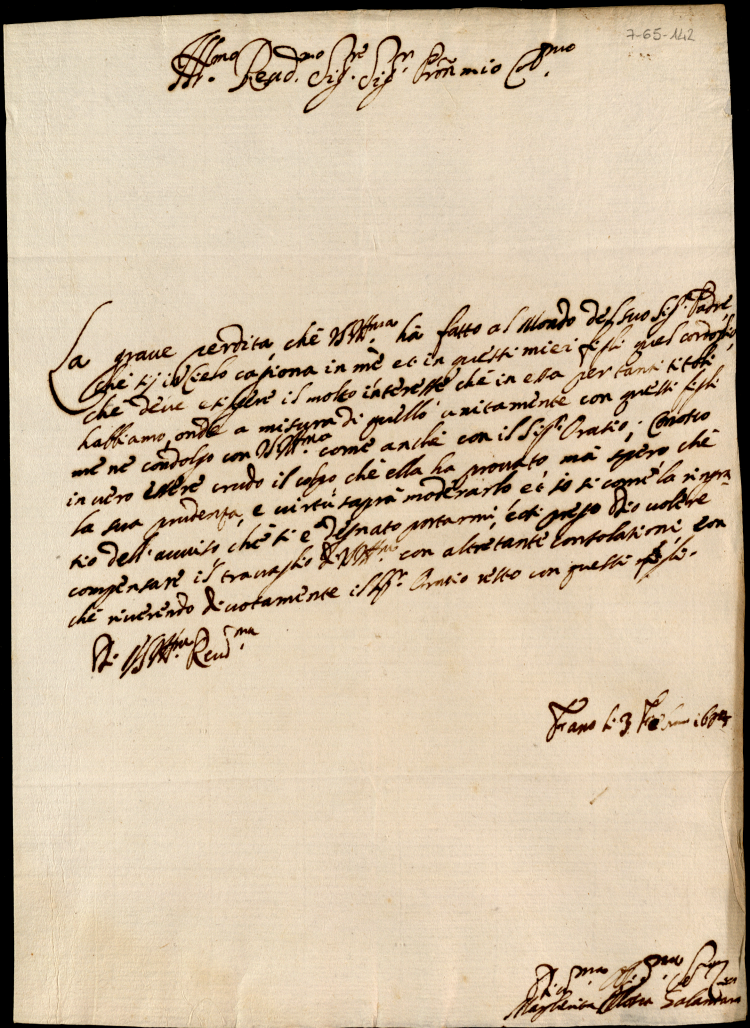 7-65-142
Ill.mo Reud.mo Sig.re Sig.r Pron mio Col.mo
La graue perdita, che VS Ill.ma ha fatto al Mondo del suo Sig.r Padre,
che sij in Cielo cagiona in me et in questi miei figli quel cordoglio,
che deue esigere il molto interesse che in essa per tanti titoli
habbiamo, onde a misura di quello unitamente con questi figli
me ne condolgo con VS Ill.ma come anche con il Sig.r Oratio; Conosco
in uero essere crudo il colpo che ella ha prouato, mà spero che
la sua prudenza, e uirtù saprà moderarlo et io si come la ringra-
tio dell'auuiso che si è degnato portarmi, così prego Dio uolere
compensare il trauaglio di VS Ill.ma con altretante consolationi, con
che riuerendo diuotamente il Sig.r Oratio resto con questi figli.
Di VS Ill.ma Reud.ma
Fano li 3